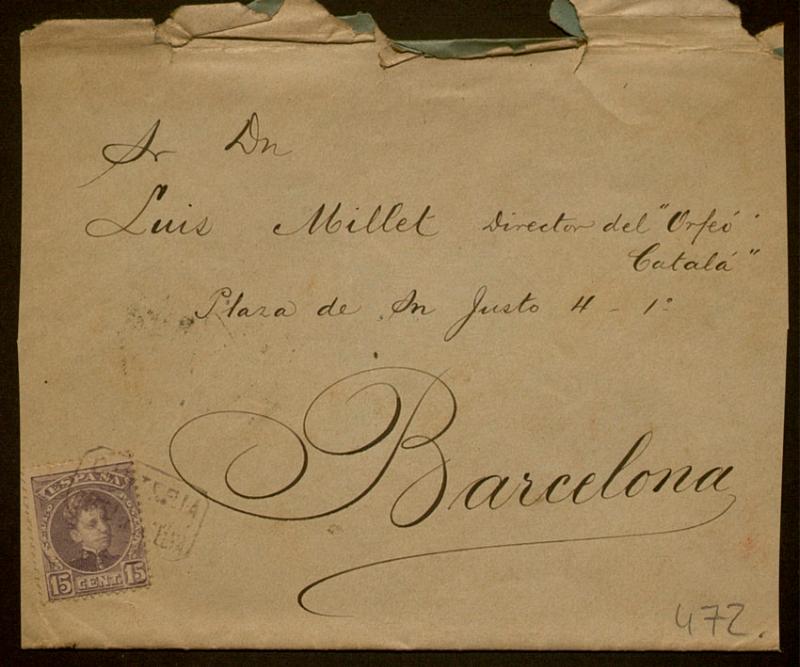 Sr Dn
Luis Millet Director del "Orfeó
Catalá"
Plaza de Sn Justo 4 - 1º
Barcelona
ESPAÑA
15 CENT. 15
472.